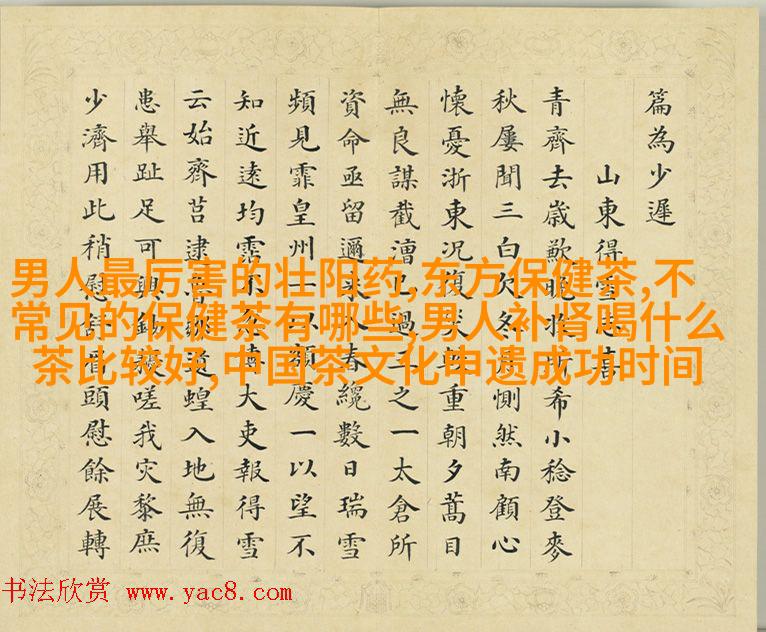 篇為少遲
山東得雪志喜
青齊去歲歉晚希小稔登麥
秋屢聞三白欠冬惻然南顧心
懷憂浙東況復災重朝夕蒿目
無良謀截漕已過三之一太倉所
資命亟留邇來入春纔數日瑞雪
頻見霏皇州一以額慶一以望不
知近遠均霑不大吏報得雪
云始齊莒逮魯道蝗入地無復
患舉趾足可興鋤嗟我災黎庶
少濟用此稍慰眉頭慰餘展轉
男人最厉害的壮阳药,东方保健茶,不
常见的保健茶有哪些,男人补肾喝什么
茶比较好,中国茶文化申遗成功时间
书法欣赏 www.yac8.com